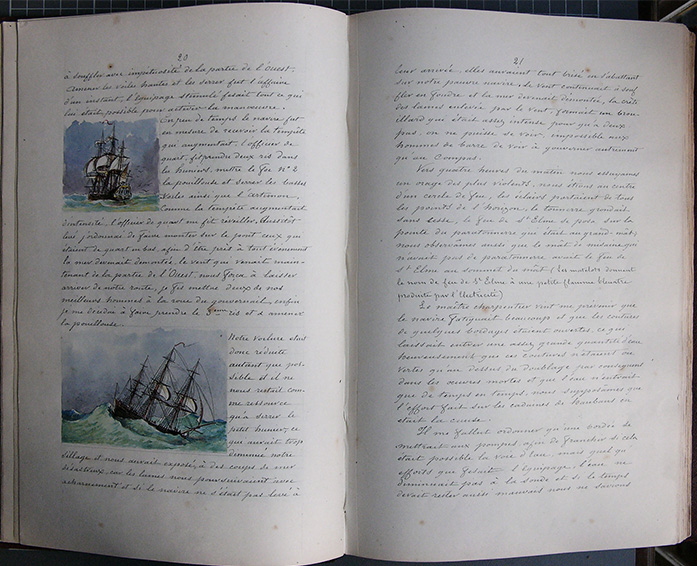 20
à souffler avec impétuosité de la partie de l'Ouest.
Amener les voiles hautes et les serrer fut l'affaire
d'un instant, l'équipage stimulé fesait tout ce qui
lui était possible pour activer la manoeuvre.
En peu de temps le navire fut
en mesure de recevoir la tempête
qui augmentait. l'officier de
quart, fit prendre deux ris dans
le hunier, mettre le foc Nº 2
la pouillouse et serrer les basses
voiles ainsi que l'artimon.
Comme la tempête augmentait
d'intensité, l'officier de quart me fit réveiller, Aussitôt
levé j'ordonnai de faire monter sur le pont ceux qui
étaient de quart en bas, afin d'être prêt à tout événement
la mer devenait démontée, le vent qui venait main-
tenant de la partie de l'Ouest, nous força à laisser
arriver de notre route, je fis mettre deux de nos
meilleurs hommes à la roue du gouvernail, enfin
je me décidai à faire prendre le 3ème ris et d'amener
la pouillouse.
Notre voilure était
donc réduite
autant que pos-
sible et il ne
nous restait com-
me ressource
qu'à serrer le
petit hunier, ce
qui aurait trop
diminué notre
sillage et nous aurait exposé, à des coups de mer
désastreux, car les lames nous poursuivaient avec
acharnement et si le navire ne s'était pas levé à
21
leur arrivée, elles auraient tout brisé en s'abattant
sur notre pauvre navire. Le vent continuait à souf
fler en foudre et la mer devenait démontée, la crête
des lames enlevée par le vent, formait un brou
illard qui était assez intense pour qu'à deux
pas, on ne puisse se voir, impossible aux
hommes de barre de voir à gouverner autrement
qu'au Compas.
Vers quatre heures du matin nous essuyames
un orage des plus violents, nous étions au centre
d'un cercle de feu, les éclairs partaient de tous
les points de l'horizon, le tonnerre grondait
sans cesse, le feu de St Elme se posa sur la
pointe du paratonnerre qui était au grand mât,
nous observâmes aussi que le mât de misaine, qui
n'avait pas de paratonnerre avait le feu de
St Elme au sommet du mât (Les matelots donnent
le nom de feu de St Elme à une petite flamme bleuâtre
produite par l'électricité)
Le maître charpentier vint me prévenir que
le navire fatiguait beaucoup et que les coutures
de quelques bordages étaient ouvertes, ce qui
laissait entrer une assez grande quantité d'eau
heureusement que ces coutures n'étaient ou
vertes qu'au dessus du doublage par conséquent
dans les oeuvres mortes et que l'eau n'entrait
que de temps en temps, nous supposâmes que
l'effort fait sur les cadènes de haubans en
était la cause.
Il me fallut ordonner qu'une bordée se
mettrait aux pompes afin de franchir si cela
était possible la voie d'eau, mais quelqu'
efforts que fesait l'équipage, l'eau ne
diminuait pas à la sonde et si le temps
devait rester aussi mauvais nous ne saurions